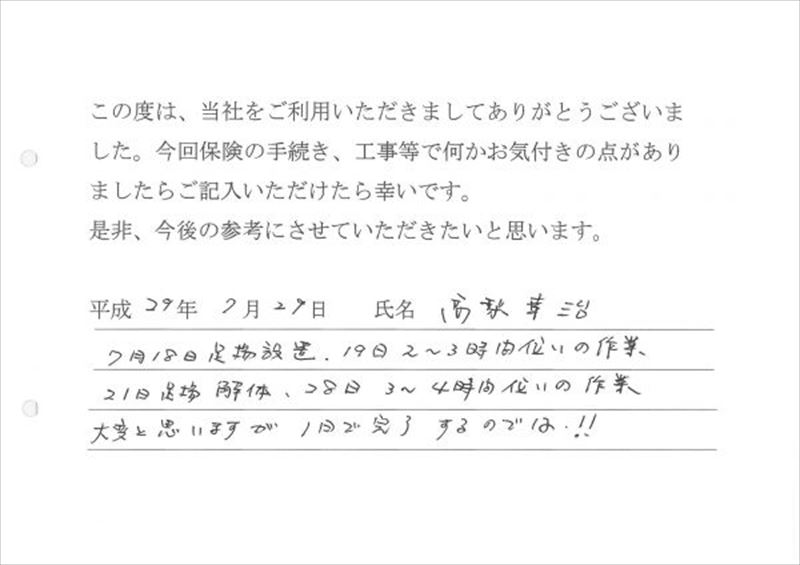 この度は、当社をご利用いただきましてありがとうございま
した。今回保険の手続き、工事等で何かお気付きの点があり
ましたらご記入いただけたら幸いです。
是非、今後の参考にさせていただきたいと思います。
平成 29年 7月 29日 氏名
7月18日足場設置、19日 2〜3時間位いの作業
21日足場解体、28日 3〜4時間位いの作業
大変と思いますが 1日で完了するのでは.!!